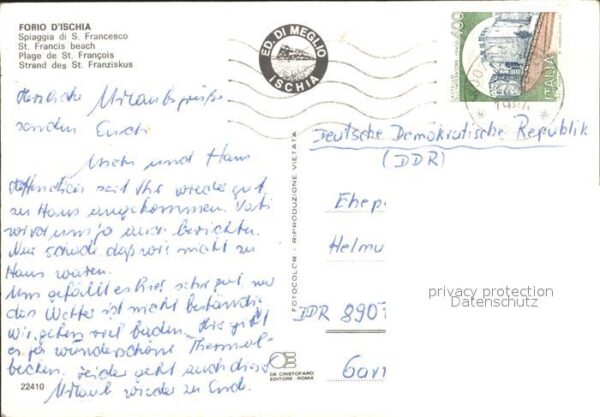 FORIO D'ISCHIA
Spiaggia di S. Francesco
St. Francis beach
Plage de St. François
Strand des St. Franziskus
ED. DI MEGLIO
ISCHIA
400
ITALIA
Herzliche Urlaubsgrüße
senden Euch
Uschi und Hans
Hoffendlich seit Ihr wieder gut
zu Haus angekommen. Vati
wird uns ja auch berichten.
Nur schade, daß wir nicht zu
Haus waren.
Uns gefällt es hier sehr gut, nur
das Wetter ist nicht beständig
wir gehen viel baden. Hier gibt
es ja wunderschöne Thermal-
becken. Leider geht auch dieser
Urlaub wieder zu End.
22410
FOTOCOLOR - RIPRODUZIONE VIETATA
DE CRISTOFARO
EDITORE ROMA
Deutsche Demokratische Republik
(DDR)
Ehep.
Helmu
privacy protection
Datenschutz
DDR 890